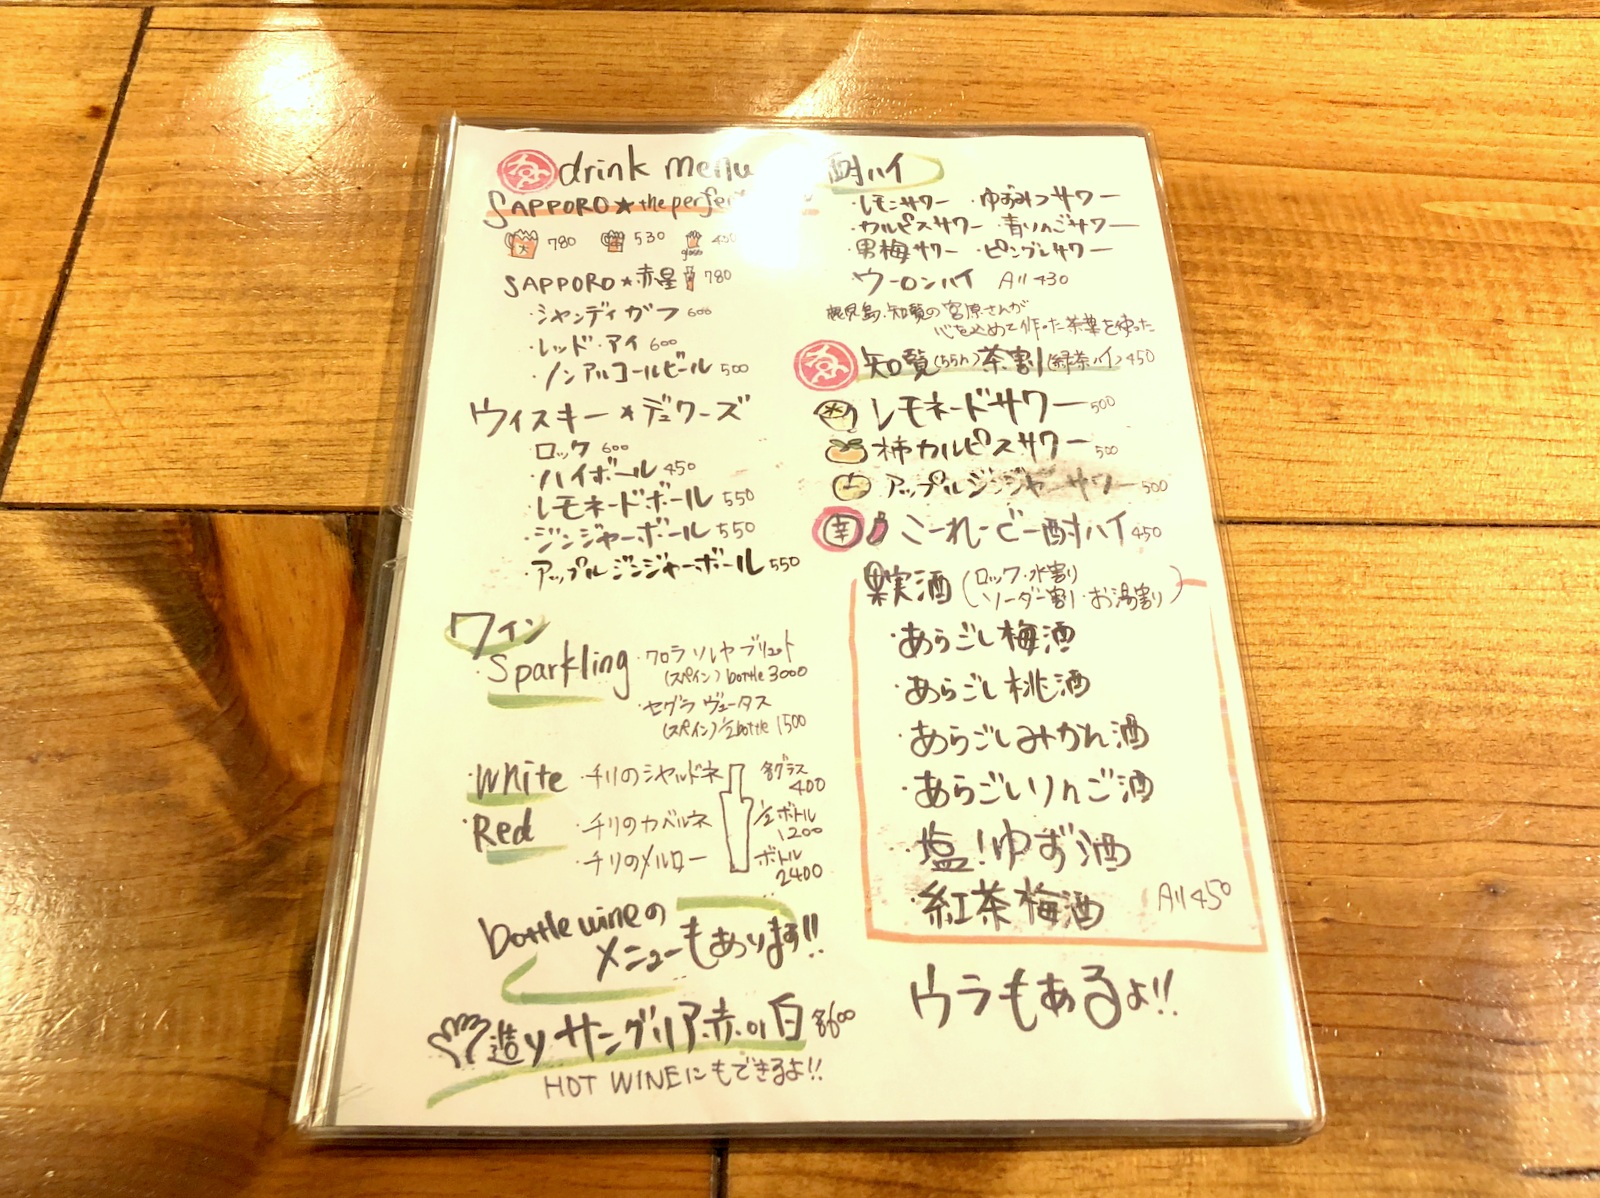 drink menu
SAPPORO★the perfect
大 780 530
glass
SAPPORO★赤星 780
・シャンディガフ 600
・レッド・アイ 600
・ノンアルコールビール 500
ウィスキー★デュワーズ
ロック 600
・ハイボール 450
・レモネードボール 550
・ジンジャーボール 550
・アップルジンジャーボール 550
ワイン
・Sparkling
(スペイン) bottle 3000
・セグラ ヴューダス
(スペイン) 1/2bottle 1500
・White ・チリのシャルドネ
各グラス 400
・Red ・チリのカベルネ
1/2ボトル 1200
・チリのメルロー
ボトル 2400
bottle wineの
メニューもあります!!
造りサングリア・赤 or 白 各600
HOT WINEにもできるよ!!
酎ハイ
・レモンサワー ・ゆずみつサワー
・カルピスサワー ・青りんごサワー
・男梅サワー ・ピングレサワー
ウーロンハイ All 430
鹿児島・知覧の宮原さんが
心を込めて作った茶葉を使った
知覧(ちらん)茶割(緑茶ハイ) 450
レモネードサワー 500
柿カルピスサワー 500
アップルジンジャーサワー 500
辛 こーれーぐー酎ハイ 450
果実酒 (ロック・水割り
ソーダー割り・お湯割り)
・あらごし梅酒
・あらごし桃酒
・あらごしみかん酒
・あらごしりんご酒
・塩!ゆず酒
・紅茶梅酒 All 450
ウラもあるよ!!